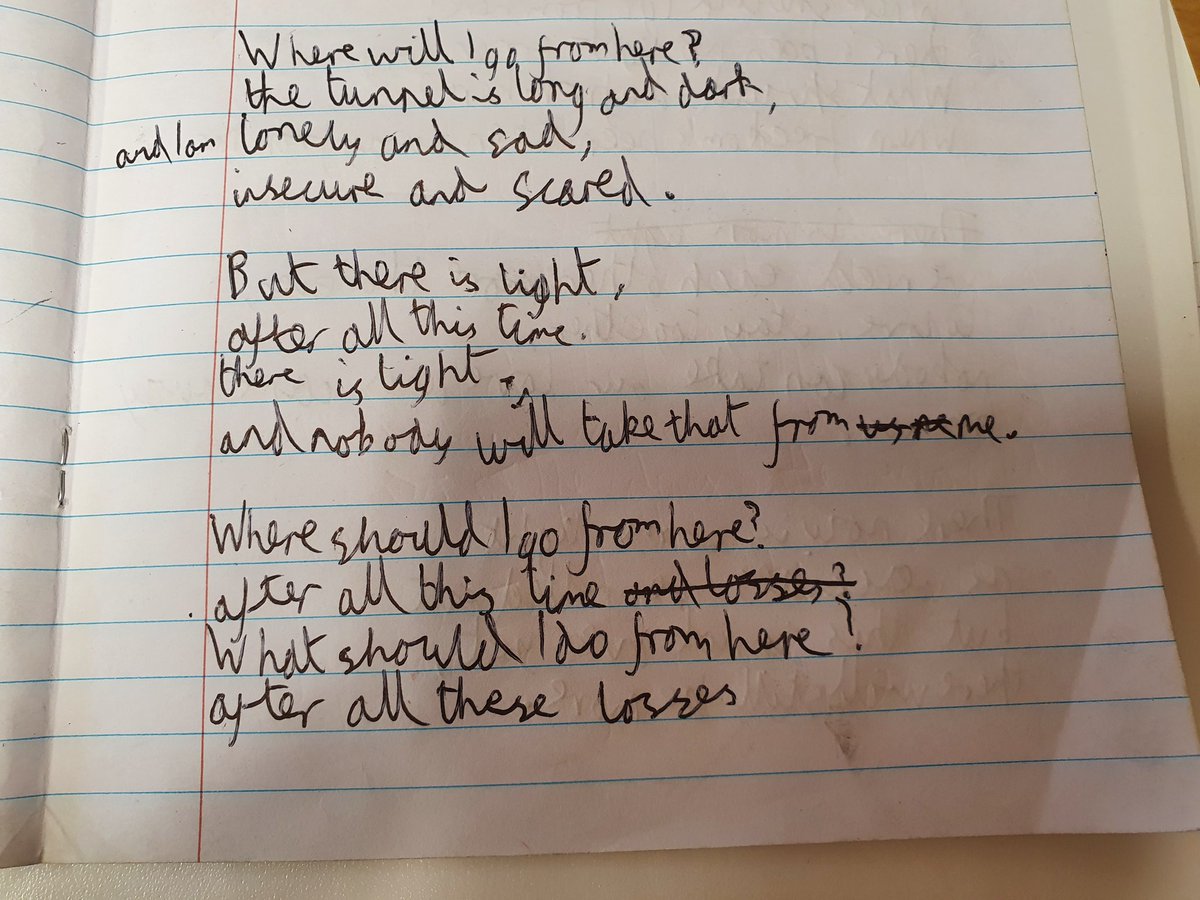 Where will I go from here?
the tunnel is long and dark,
and I am lonely and sad,
insecure and scared.
But there is light,
after all this time.
there is light.
and nobody will take that from me.
Where should I go from here?
after all this time and losses?
What should I do from here?
after all these losses